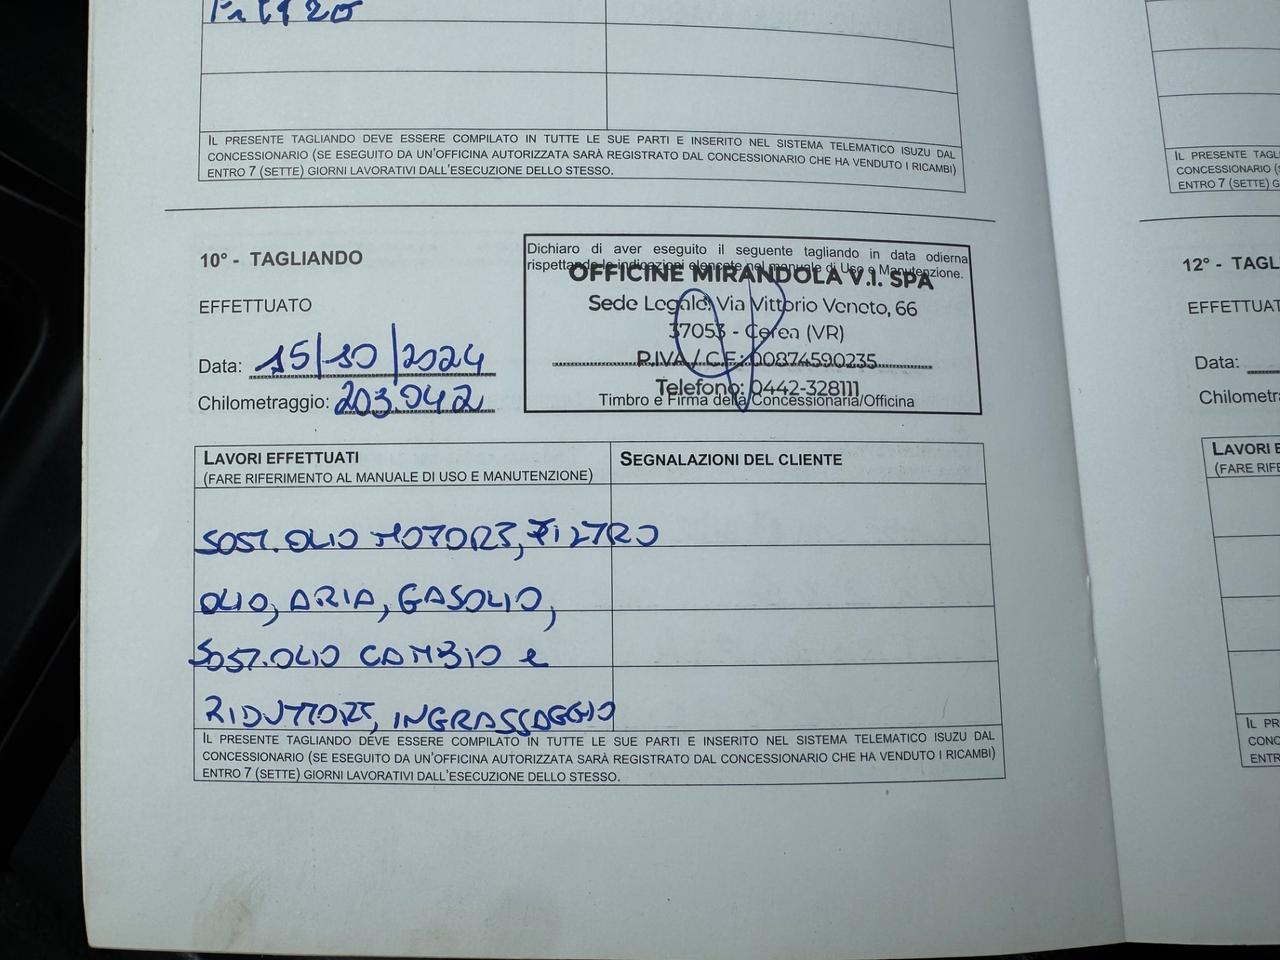 Filtro
IL PRESENTE TAGLIANDO DEVE ESSERE COMPILATO IN TUTTE LE SUE PARTI E INSERITO NEL SISTEMA TELEMATICO ISUZU DAL
CONCESSIONARIO (SE ESEGUITO DA UN'OFFICINA AUTORIZZATA SARÀ REGISTRATO DAL CONCESSIONARIO CHE HA VENDUTO I RICAMBI)
ENTRO 7 (SETTE) GIORNI LAVORATIVI DALL'ESECUZIONE DELLO STESSO.
10° - TAGLIANDO
EFFETTUATO
Data: 15/10/2024
Chilometraggio: 203.042
Dichiaro di aver eseguito il seguente tagliando in data odierna
rispettando le indicazioni elencate nel manuale di Uso e Manutenzione.
OFFICINE MIRANDOLA V.I. SPA
Sede Legale: Via Vittorio Veneto, 66
37053 - Cerea (VR)
P.IVA / C.F.: 00874590235
Telefono: 0442-328111
Timbro e Firma della Concessionaria/Officina
LAVORI EFFETTUATI
(FARE RIFERIMENTO AL MANUALE DI USO E MANUTENZIONE)
SEGNALAZIONI DEL CLIENTE
SOST. OLIO MOTORE, FILTRO
OLIO, ARIA, GASOLIO,
SOST. OLIO CAMBIO e
RIDUTTORE, INGRASSAGGIO
IL PRESENTE TAGLIANDO DEVE ESSERE COMPILATO IN TUTTE LE SUE PARTI E INSERITO NEL SISTEMA TELEMATICO ISUZU DAL
CONCESSIONARIO (SE ESEGUITO DA UN'OFFICINA AUTORIZZATA SARÀ REGISTRATO DAL CONCESSIONARIO CHE HA VENDUTO I RICAMBI)
ENTRO 7 (SETTE) GIORNI LAVORATIVI DALL'ESECUZIONE DELLO STESSO.
IL PRESENTE TAGL
CONCESSIONARIO (
ENTRO 7 (SETTE) G
12° - TAGL
EFFETTUA
Data:
Chilometr
LAVORI E
(FARE RIFE
IL PR
CONC
ENTR